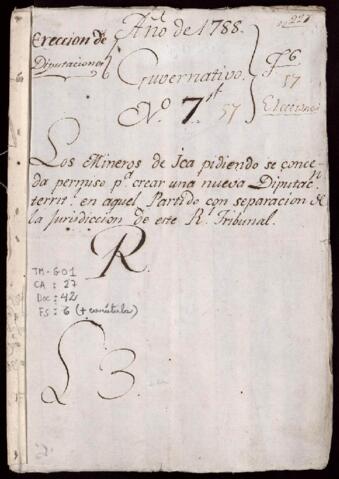 Añ.ᵒ de 1788.
227
Ereccion de
Diputaciones
Guvernativo.
6
57
Nº 7.
57
Elecciones
Los Mineros de Ica pidiendo se conce-
da permiso pᵃ crear una nueva Diputac.ⁿ
territ.ˡ en aquel Partido con separacion de
la jurisdiccion de este Rˡ Tribunal.
R.
TM-GO1
CA : 27
Doc : 42
FS : 6 (+ carátula)
L 3